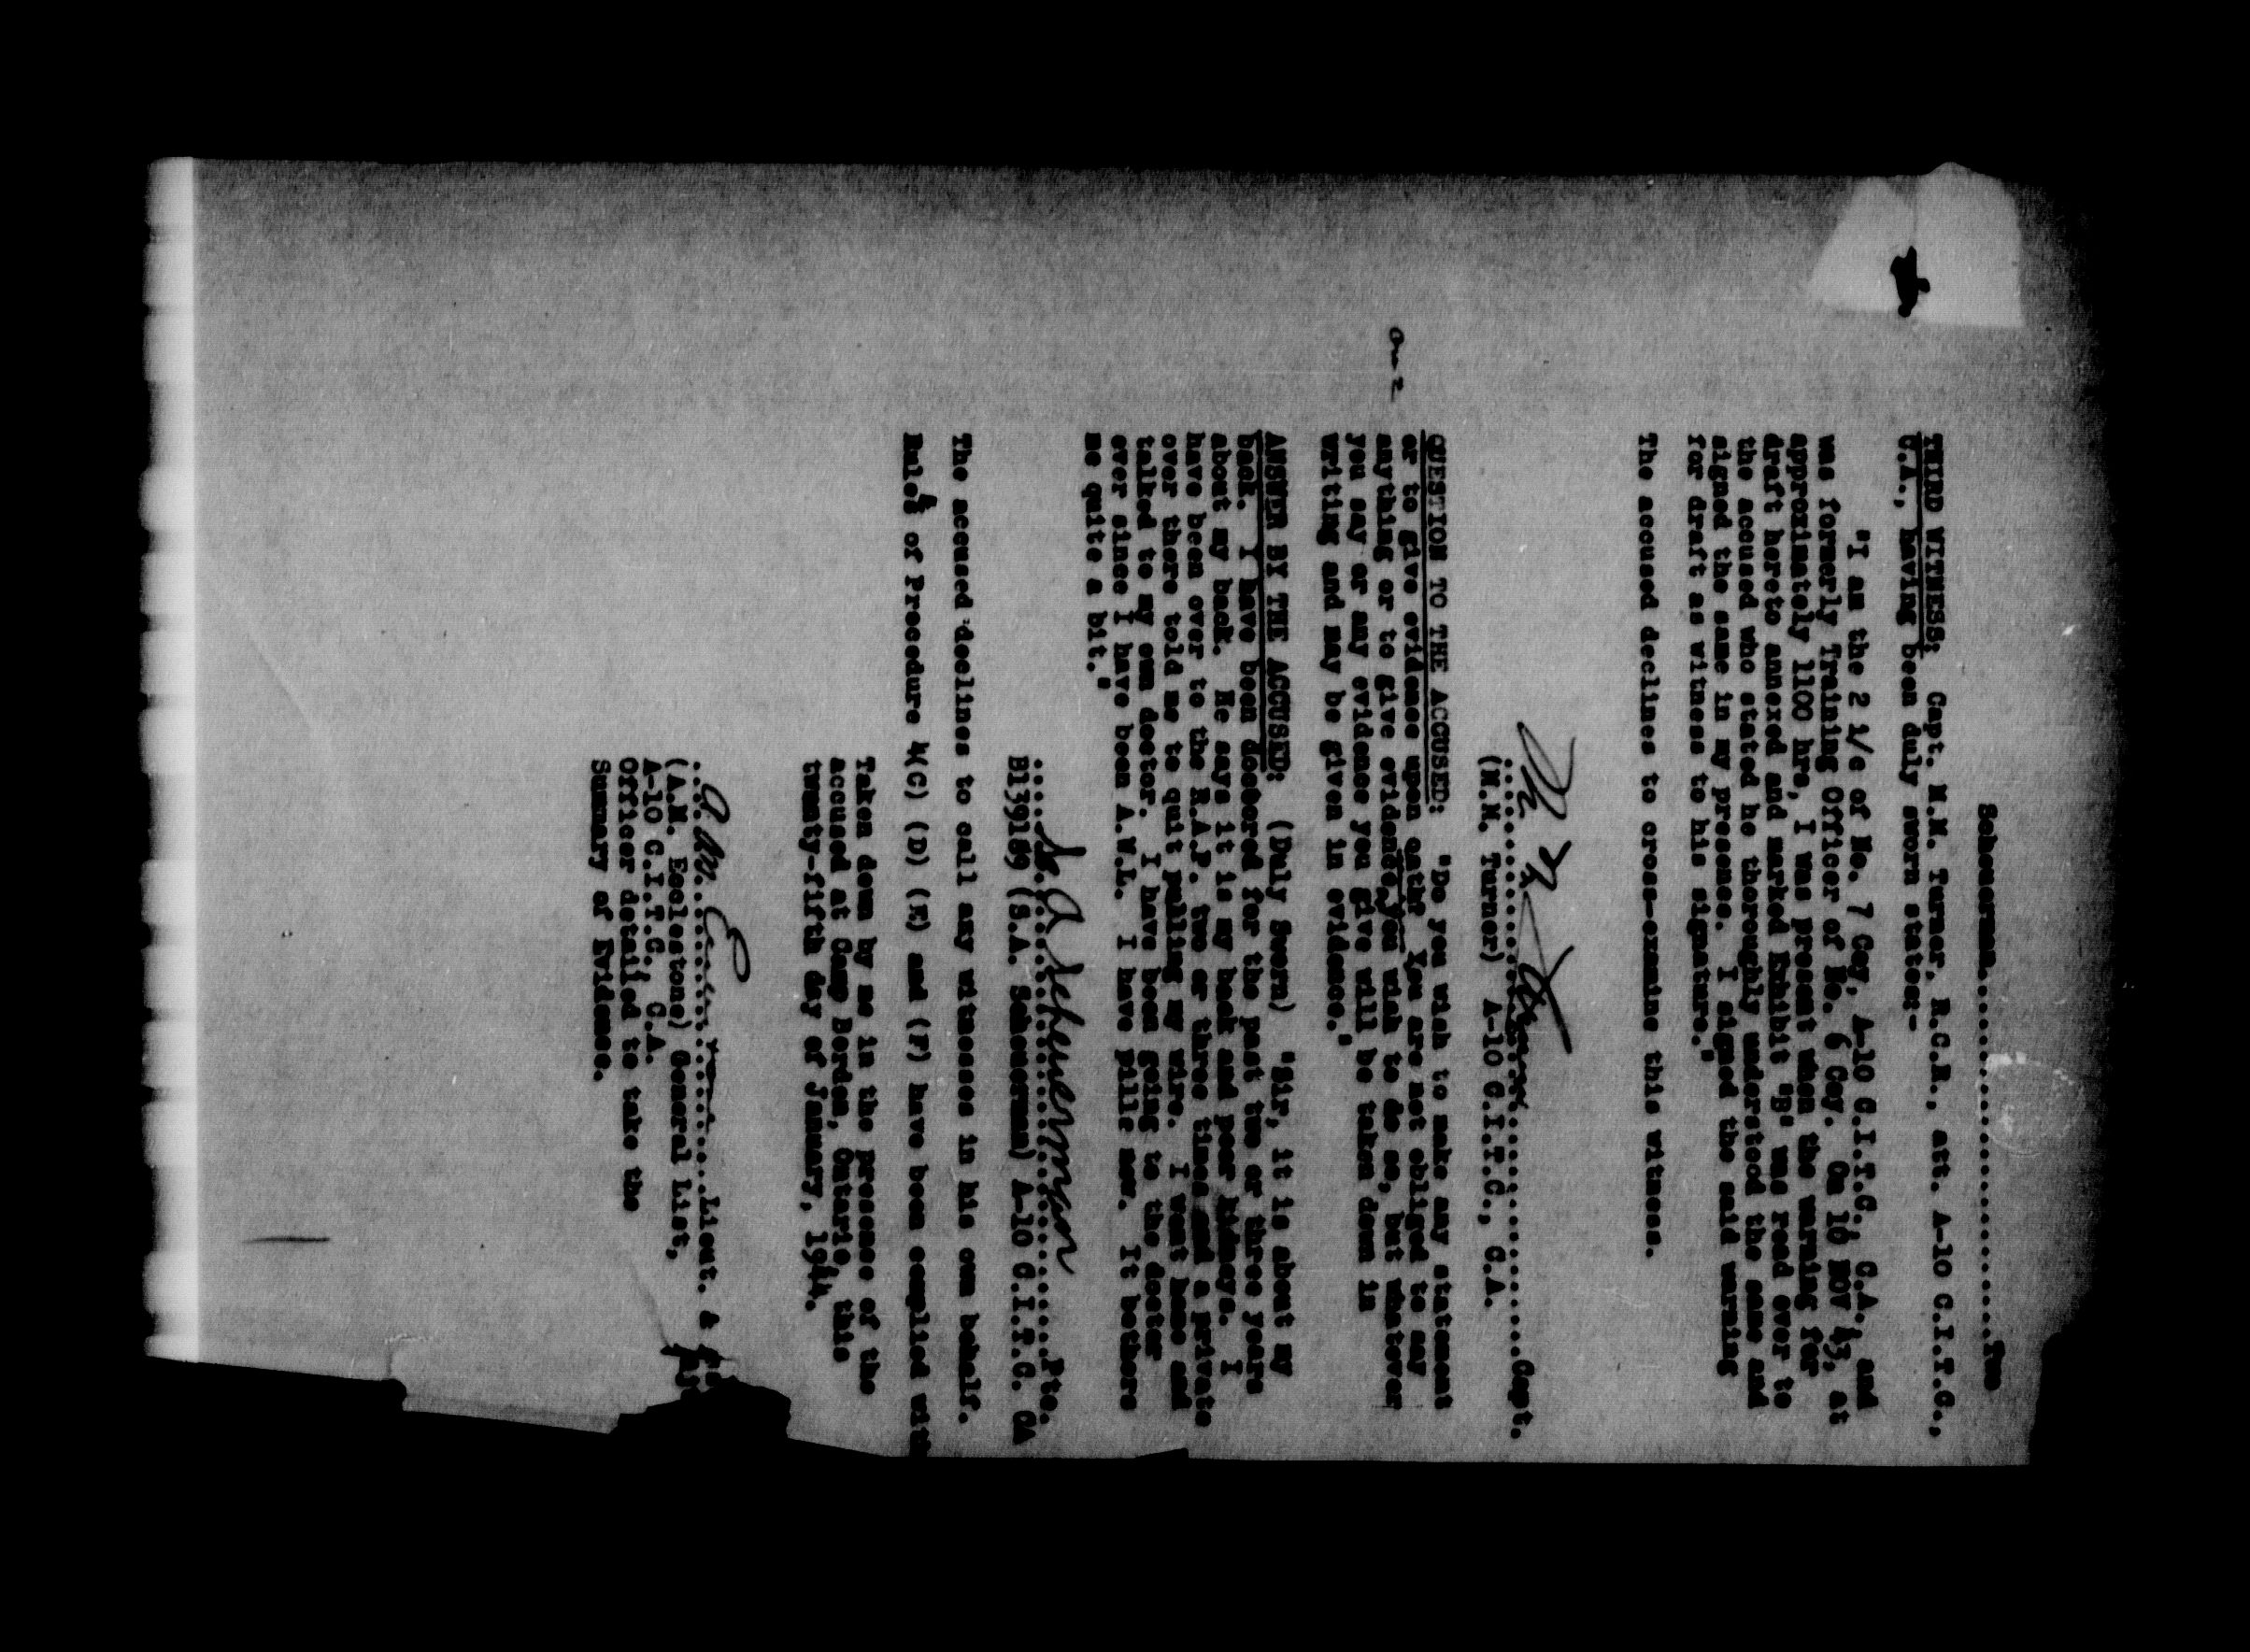 Scheuerman..............................Two
THIRD WITNESS: Capt. N.N. Turner, R.C.R., att. A-10 C.I.T.C.,
C.A., having been duly sworn states:-
"I am the 2 i/c of No. 7 Coy, A-10 C.I.T.C., C.A., and
was formerly Training Officer of No. 6 Coy. On 10 NOV 43, at
approximately 1100 hrs, I was present when the warning for
draft hereto annexed and marked Exhibit "B" was read over to
the accused who stated he thoroughly understood the same and
signed the same in my presence. I signed the said warning
for draft as witness to his signature."
The accused declines to cross-examine this witness.
..............................Capt.
(N.N. Turner) A-10 C.I.T.C., C.A.
QUESTION TO THE ACCUSED: "Do you wish to make any statement
or to give evidence upon oath? You are not obliged to say
anything or to give evidence, you wish to do so, but whatever
you say or any evidence you give will be taken down in
writing and may be given in evidence."
ANSWER BY THE ACCUSED: (Duly Sworn) "Sir, it is about my
back. I have been doctored for the past two or three years
about my back. He says it is my back and poor kidneys. I
have been over to the R.A.P. two or three times and a private
over there told me to quit pulling my wire. I went home and
talked to my own doctor. I have been going to the doctor
ever since I have been A.W.L. I have pills now. It bothers
me quite a bit."
S. A Scheuerman Pte.
B139189 (S.A. Scheuerman) A-10 C.I.T.C. CA
The accused declines to call any witnesses in his own behalf.
Rules of Procedure 4(C) (D) (E) and (F) have been complied with
Taken down by me in the presence of the
accused at Camp Borden, Ontario, this
twenty-fifth day of January, 1944.
..............................Lieut. &
(A.M. Ecclestone) General List,
A-10 C.I.T.C., C.A.
Officer detailed to take the
Summary of Evidence.